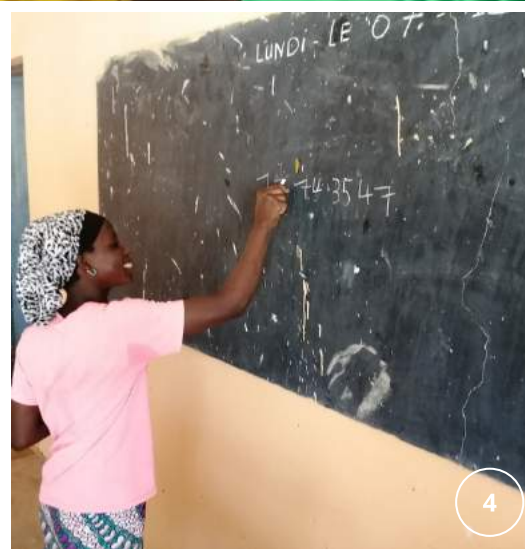 LUNDI - LE 07.
74.3547
4